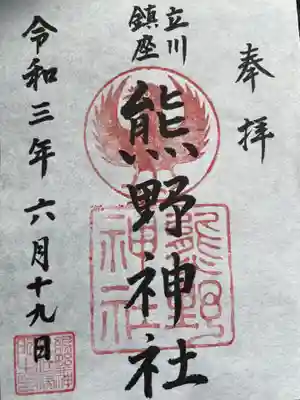 奉拝
立川
鎮座
熊野神社
令和三年六月十九日
熊野
神社